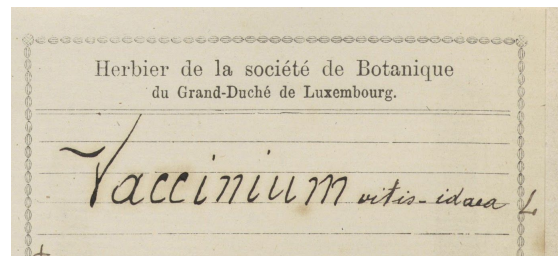 Herbier de la société de Botanique
du Grand-Duché de Luxembourg.
Vaccinium vitis-idaea L